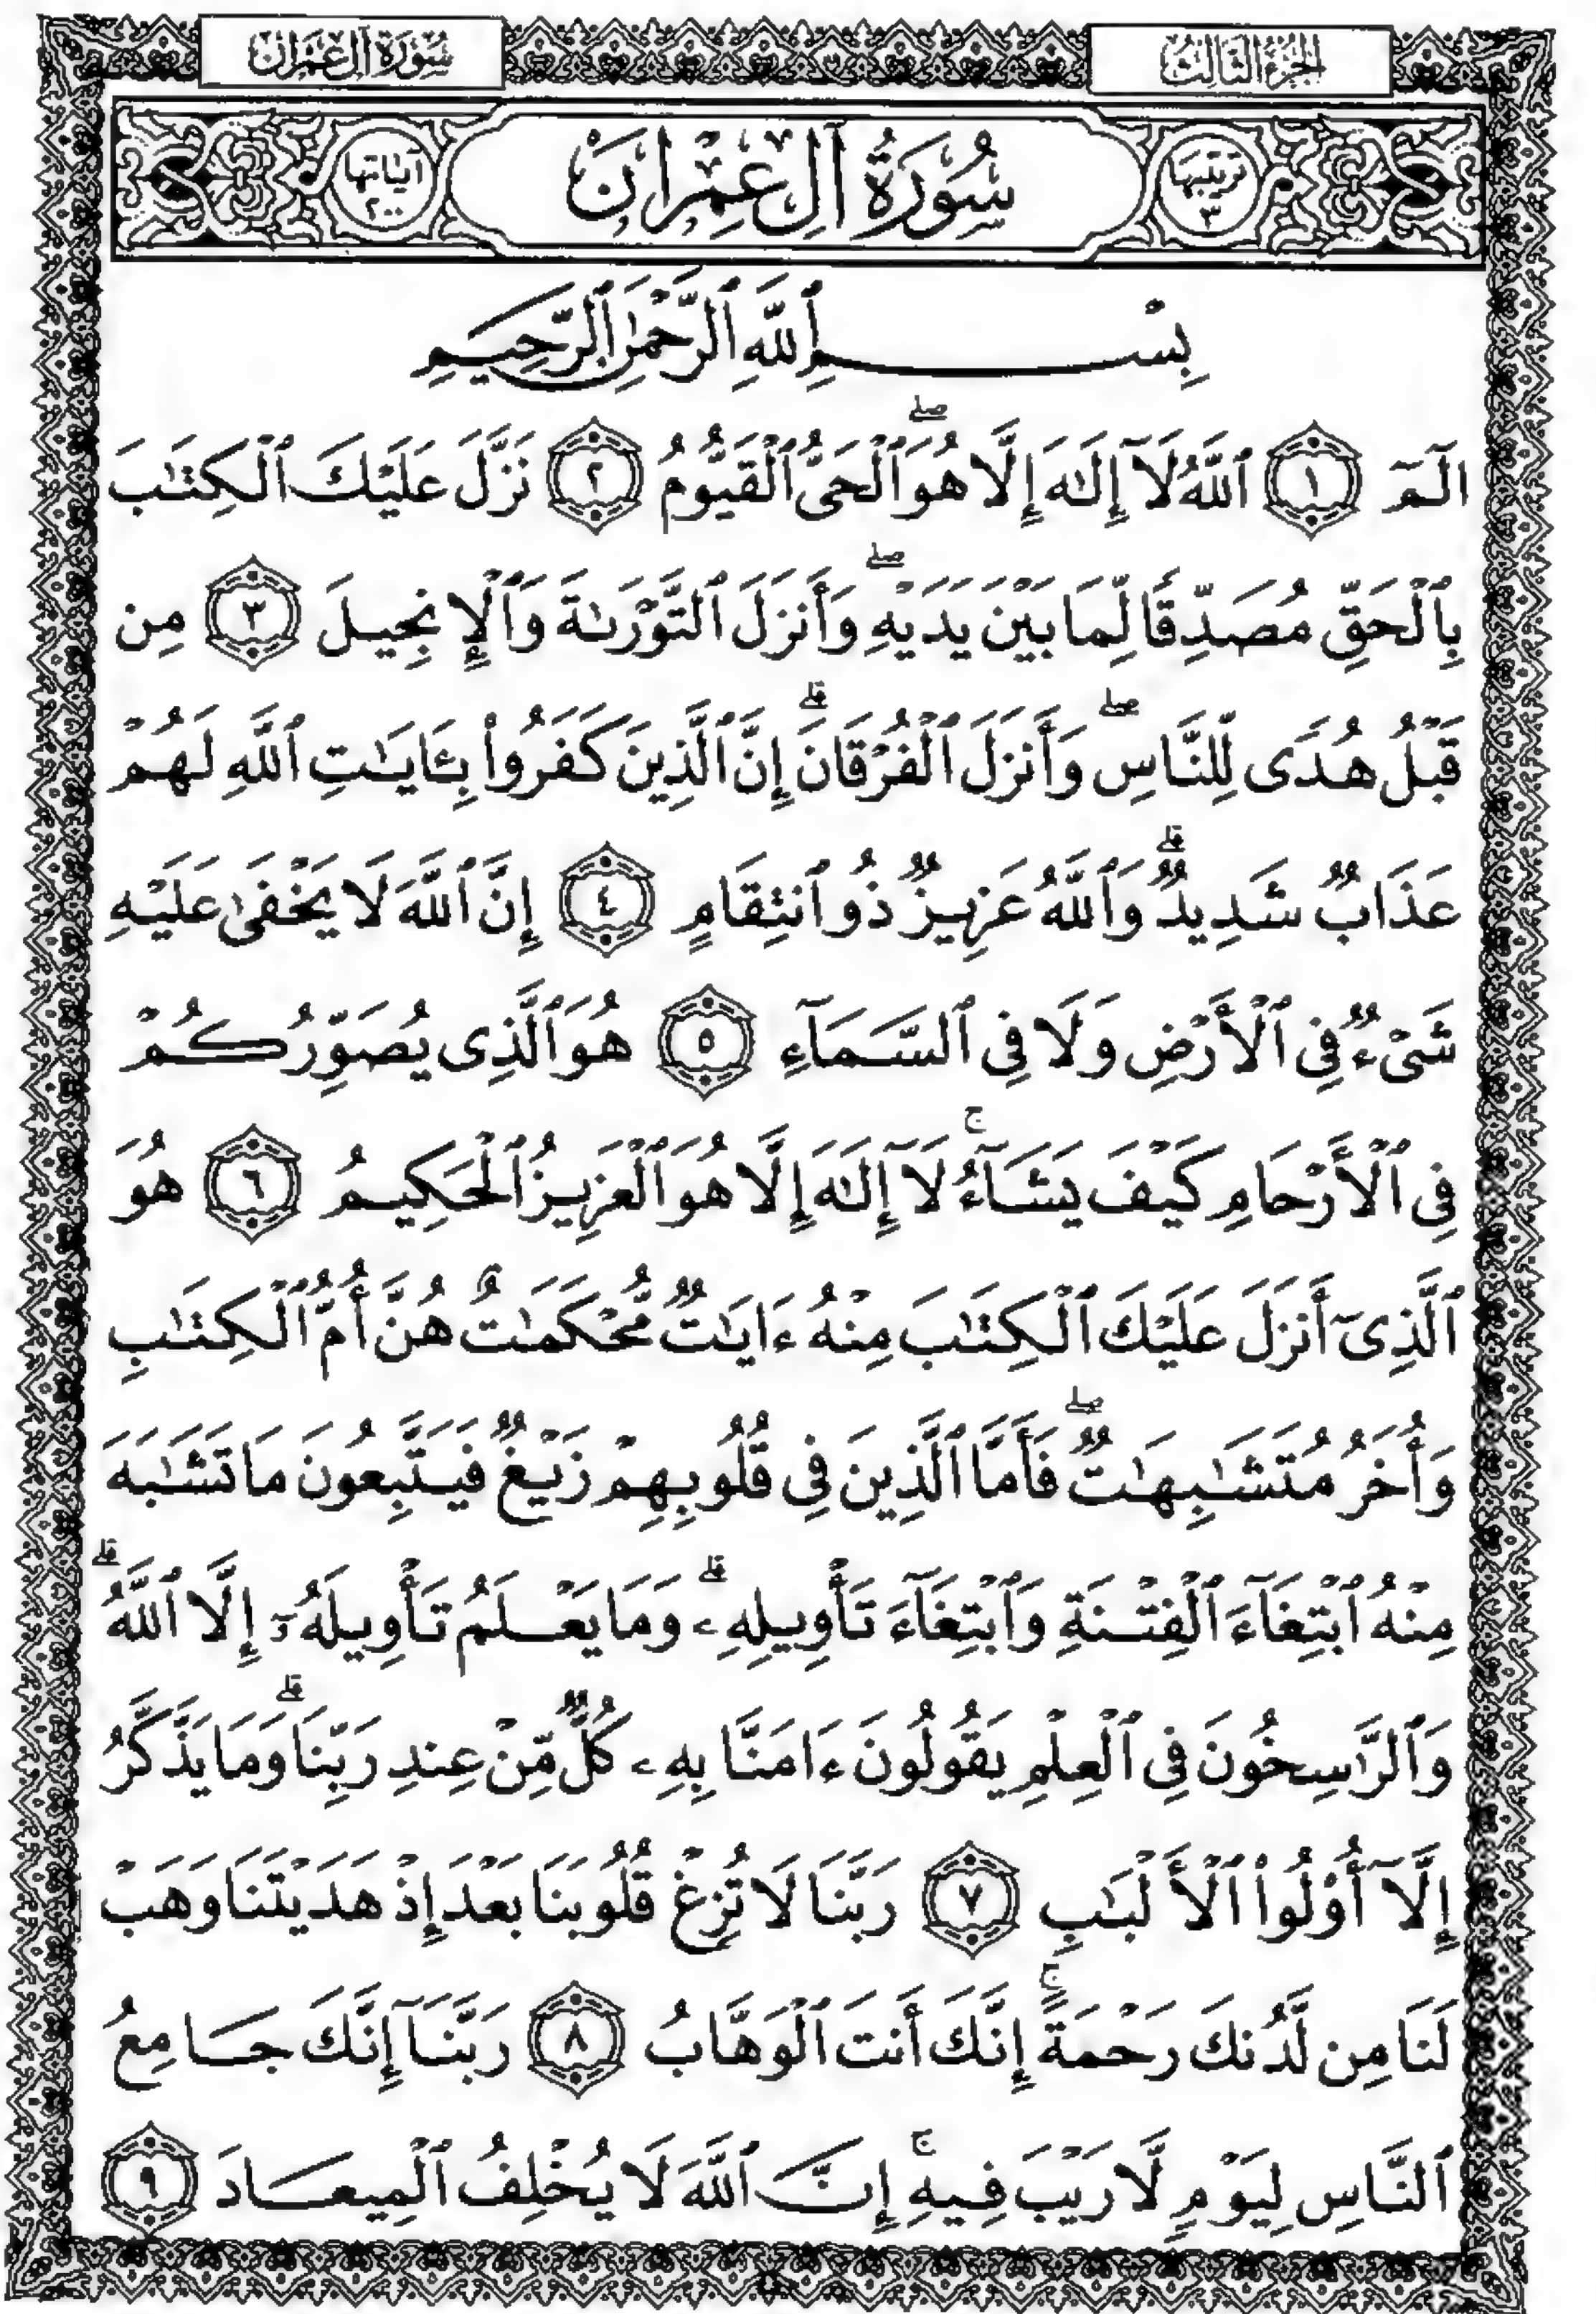 الجزء الثالث
سورة آل عمران
ترتيبها ٣
سُورَةُ آلِ عِمْرَانَ
آياتها ٢٠٠
بِسْمِ ٱللَّهِ ٱلرَّحْمَٰنِ ٱلرَّحِيمِ
الٓمٓ ١ ٱللَّهُ لَآ إِلَٰهَ إِلَّا هُوَ ۖ ٱلْحَىُّ ٱلْقَيُّومُ ٢ نَزَّلَ عَلَيْكَ ٱلْكِتَٰبَ
بِٱلْحَقِّ مُصَدِّقًا لِّمَا بَيْنَ يَدَيْهِ ۖ وَأَنزَلَ ٱلتَّوْرَىٰةَ وَٱلْإِنجِيلَ ٣ مِن
قَبْلُ هُدًى لِّلنَّاسِ ۖ وَأَنزَلَ ٱلْفُرْقَانَ ۗ إِنَّ ٱلَّذِينَ كَفَرُوا۟ بِـَٔايَٰتِ ٱللَّهِ لَهُمْ
عَذَابٌ شَدِيدٌ ۗ وَٱللَّهُ عَزِيزٌ ذُو ٱنتِقَامٍ ٤ إِنَّ ٱللَّهَ لَا يَخْفَىٰ عَلَيْهِ
شَىْءٌ فِى ٱلْأَرْضِ وَلَا فِى ٱلسَّمَآءِ ٥ هُوَ ٱلَّذِى يُصَوِّرُكُمْ
فِى ٱلْأَرْحَامِ كَيْفَ يَشَآءُ ۚ لَآ إِلَٰهَ إِلَّا هُوَ ٱلْعَزِيزُ ٱلْحَكِيمُ ٦ هُوَ
ٱلَّذِىٓ أَنزَلَ عَلَيْكَ ٱلْكِتَٰبَ مِنْهُ ءَايَٰتٌ مُّحْكَمَٰتٌ هُنَّ أُمُّ ٱلْكِتَٰبِ
وَأُخَرُ مُتَشَٰبِهَٰتٌ ۖ فَأَمَّا ٱلَّذِينَ فِى قُلُوبِهِمْ زَيْغٌ فَيَتَّبِعُونَ مَا تَشَٰبَهَ
مِنْهُ ٱبْتِغَآءَ ٱلْفِتْنَةِ وَٱبْتِغَآءَ تَأْوِيلِهِۦ ۗ وَمَا يَعْلَمُ تَأْوِيلَهُۥٓ إِلَّا ٱللَّهُ ۗ
وَٱلرَّٰسِخُونَ فِى ٱلْعِلْمِ يَقُولُونَ ءَامَنَّا بِهِۦ كُلٌّ مِّنْ عِندِ رَبِّنَا ۗ وَمَا يَذَّكَّرُ
إِلَّآ أُو۟لُوا۟ ٱلْأَلْبَٰبِ ٧ رَبَّنَا لَا تُزِغْ قُلُوبَنَا بَعْدَ إِذْ هَدَيْتَنَا وَهَبْ
لَنَا مِن لَّدُنكَ رَحْمَةً ۚ إِنَّكَ أَنتَ ٱلْوَهَّابُ ٨ رَبَّنَآ إِنَّكَ جَامِعُ
ٱلنَّاسِ لِيَوْمٍ لَّا رَيْبَ فِيهِ ۚ إِنَّ ٱللَّهَ لَا يُخْلِفُ ٱلْمِيعَادَ ٩